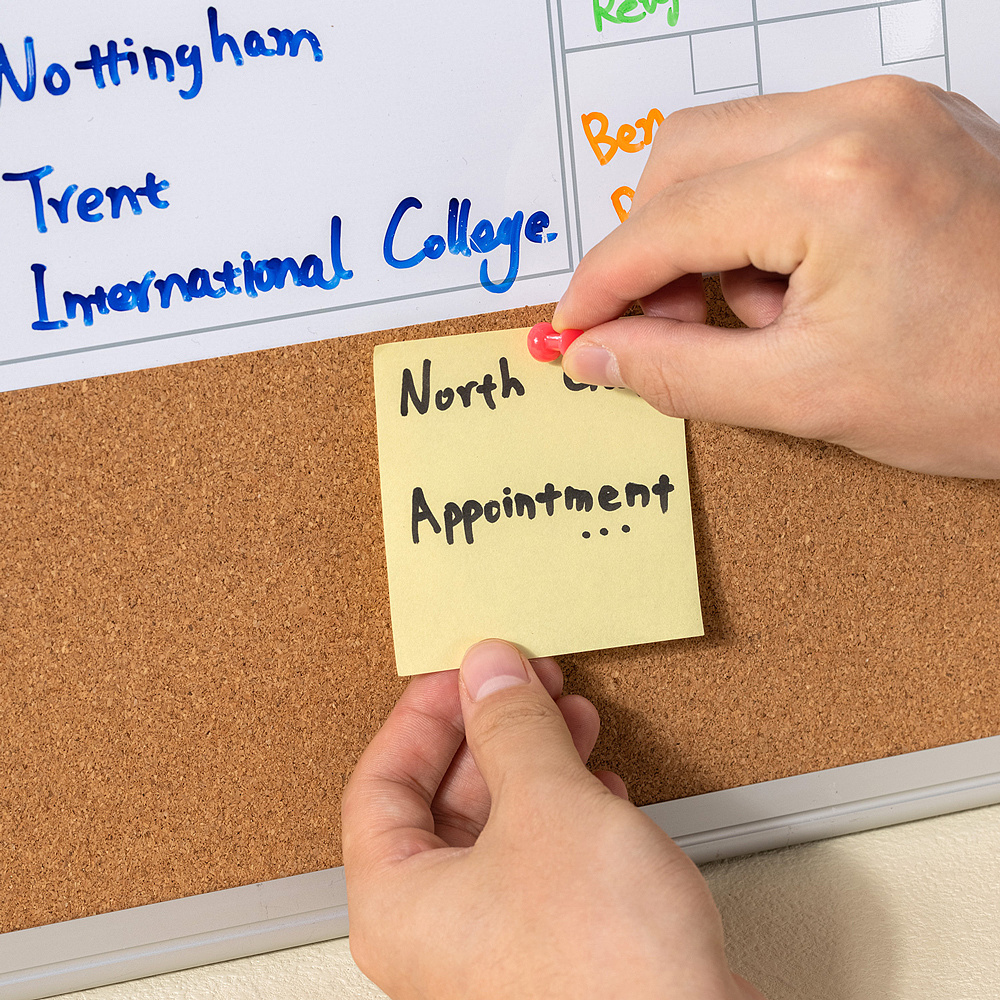 Nottingham
Trent
International College.
Kevy
Ben
North
Appointment
...